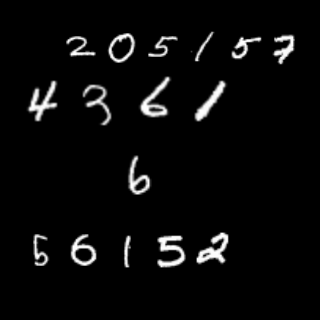 205157
4361
6
56152